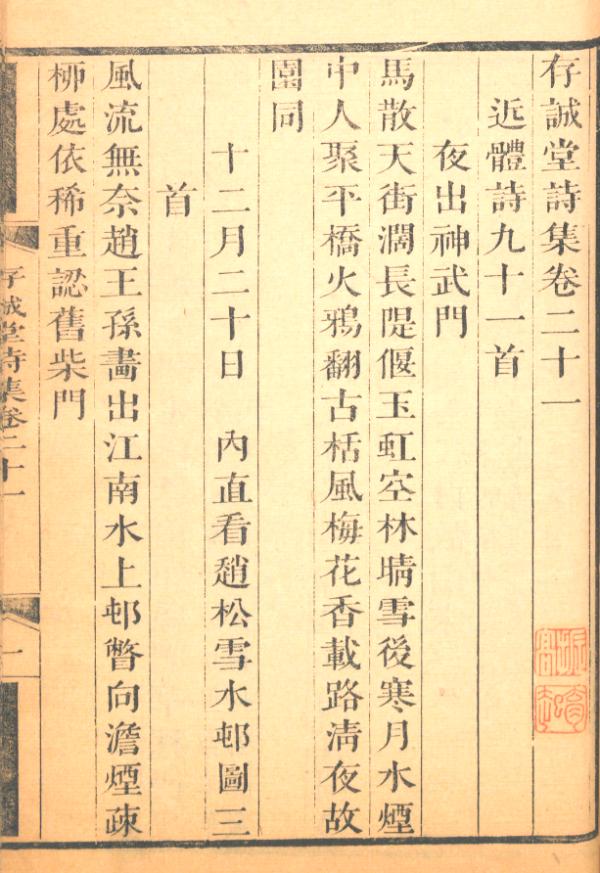 存誠堂詩集卷二十一
近體詩九十一首
夜出神武門
馬散天街濶長隄偃玉虹空林晴雪後寒月水煙
中人聚平橋火鴉翻古栝風梅花香載路淸夜故
園同
十二月二十日　內直看趙松雪水邨圖三
首
風流無奈趙王孫畵出江南水上邨瞥向澹煙疎
栁處依稀重認舊柴門
存誠堂詩集卷二十一
一